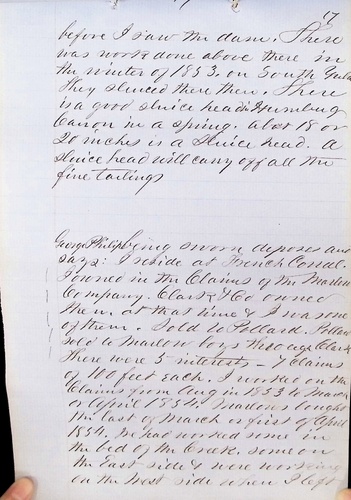 17
before I saw the dam. There
was work done above there in
the winter of 1853. on South Gulch
they sluiced there then. There
is a good sluice head in Humbug
Canon in a spring. about 18 or
20 inches is a Sluice head. A
sluice head will carry off all the
fine tailings
George Philips being sworn deposes and
says: I reside at French Corral.
I owned in the Claims of the Marlow
Company. Clark & Co owned
then. at that time & I was one
of them. Sold to Pollard. Pollard
sold to Marlow boys two years Clark
there were 5 interests - 7 Claims
of 100 feet each. I worked on the
Claims from Aug in 1853 to March
or April 1854. Marlows bought
the last of March or first of April
1854. We had worked some in
the bed of the Creek, some on
the East side & were working
on the West side when I left